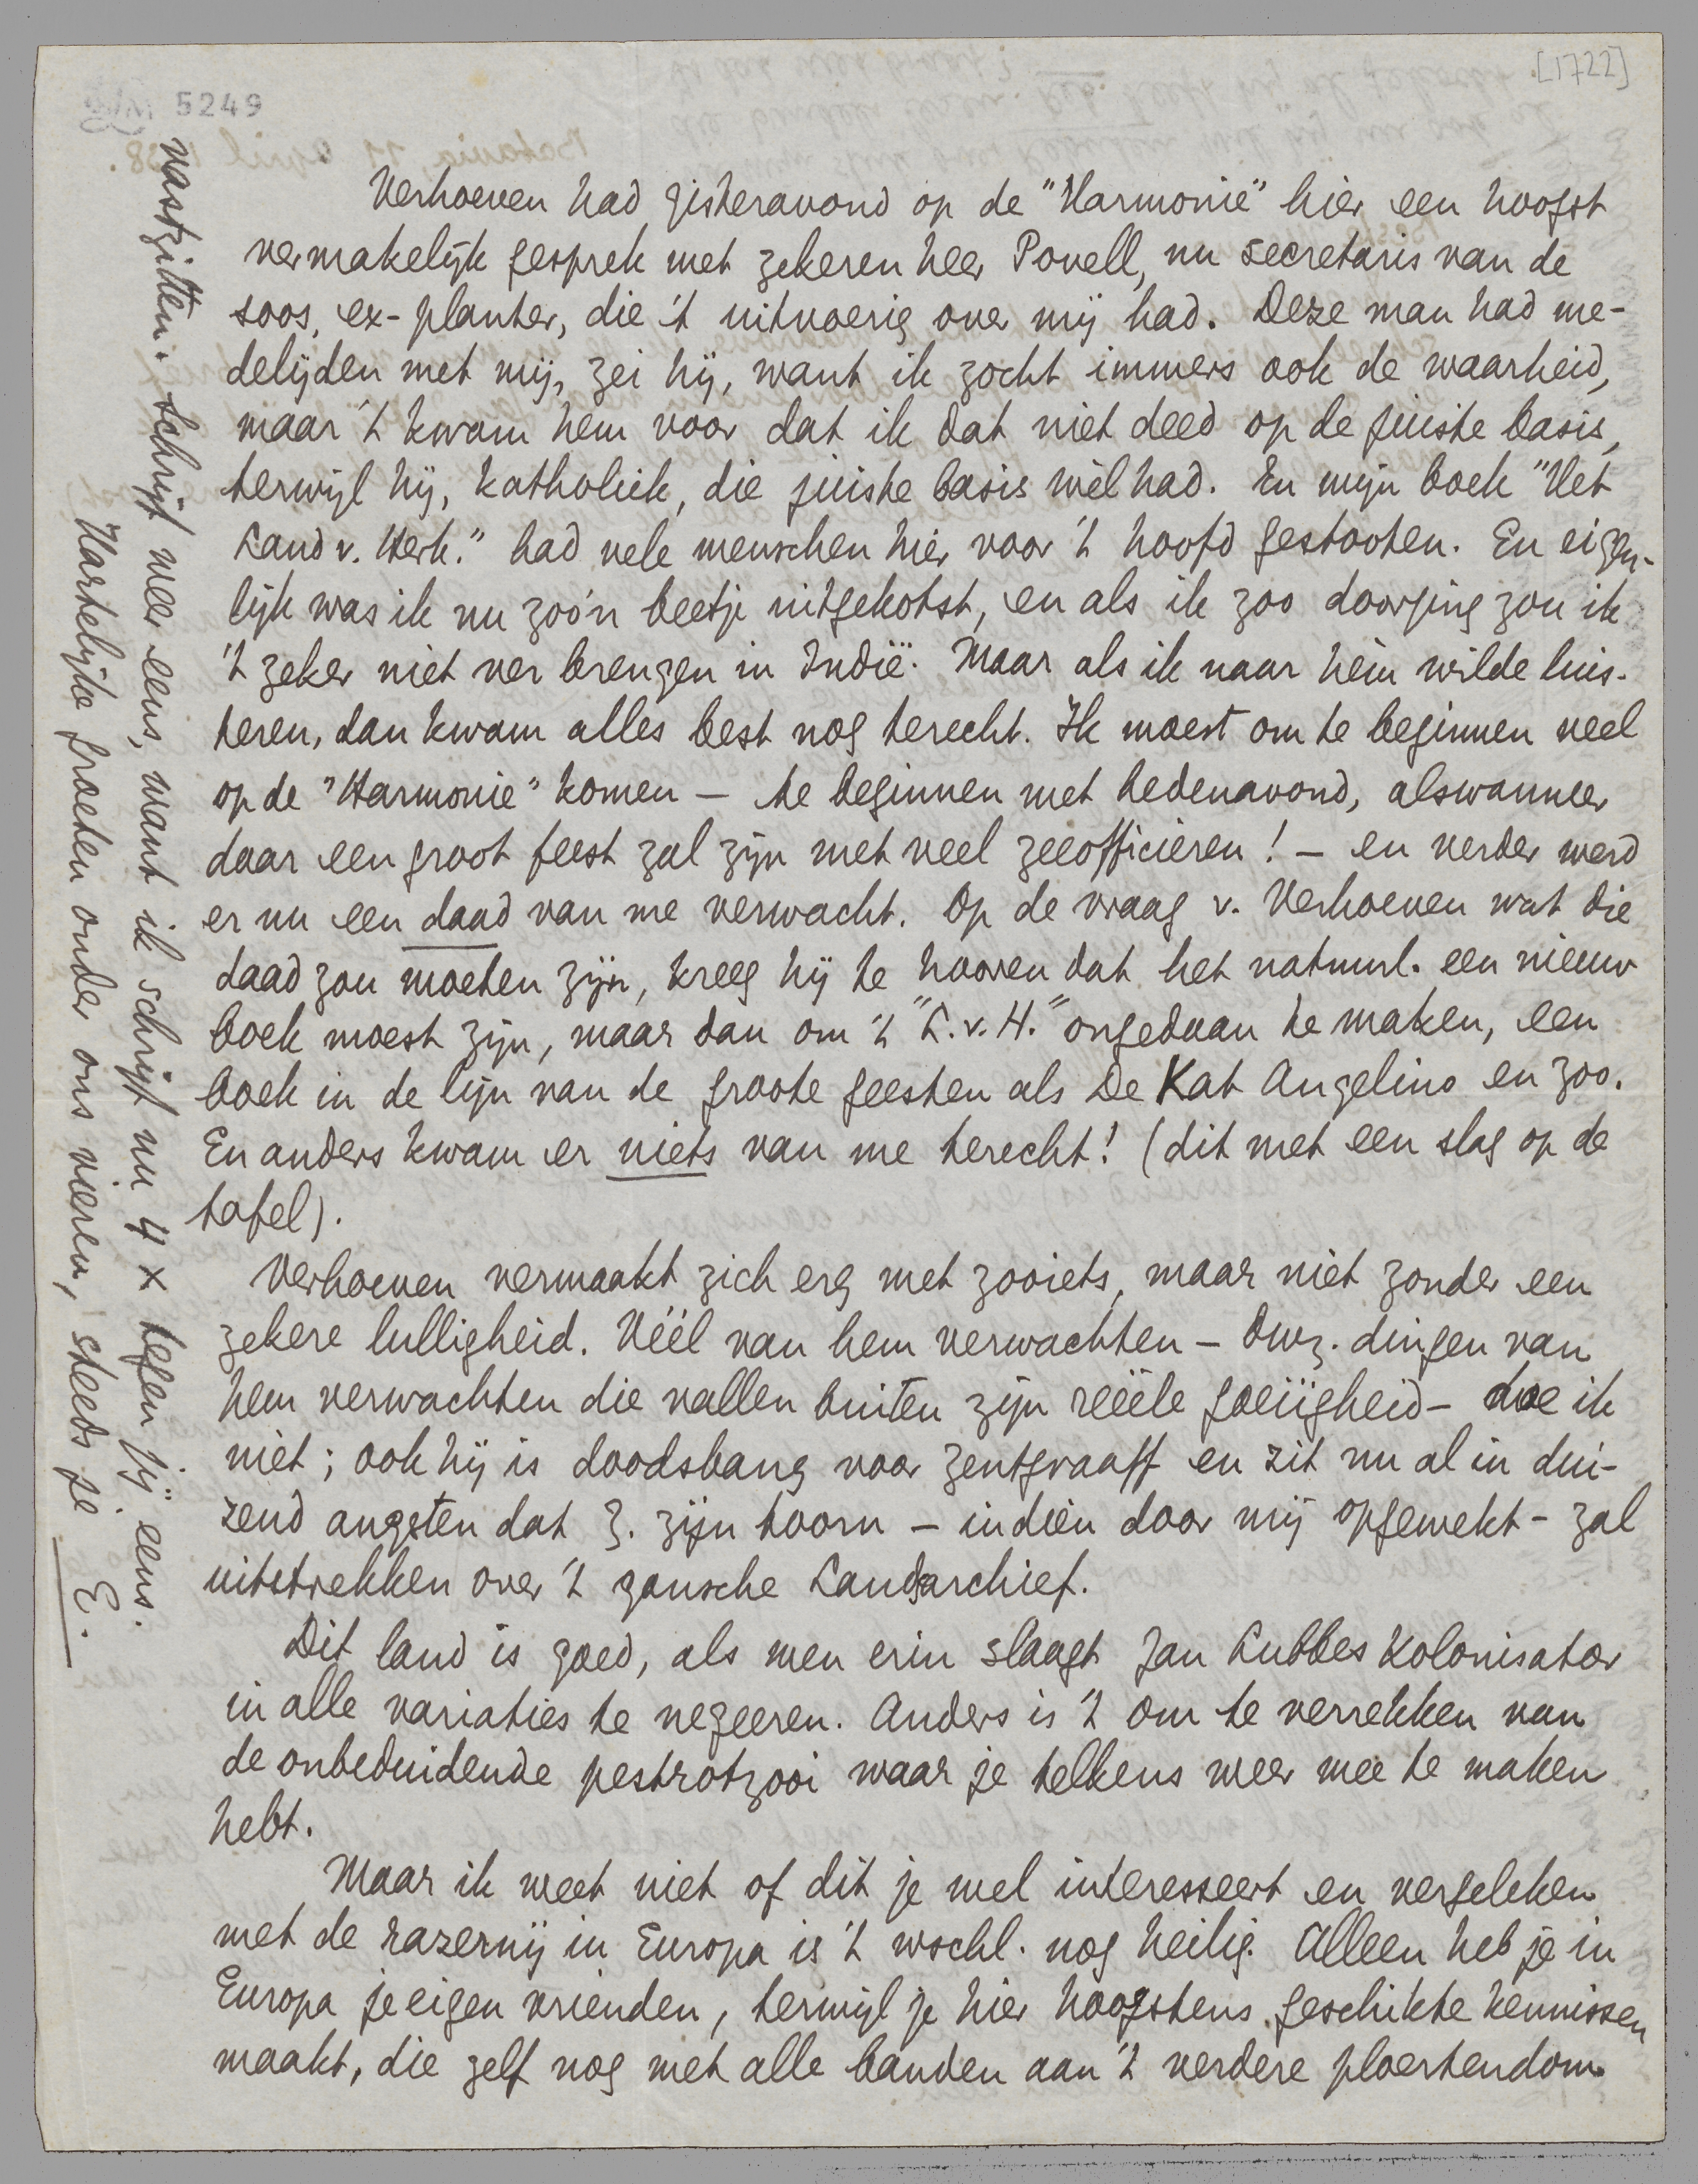 [1722]
5249
Verhoeven had gisteravond op de "Harmonie" hier een hoogst
vermakelijk gesprek met zekeren heer Povell, nu secretaris van de
soos, ex-planter, die 't uitvoerig over mij had. Deze man had me-
delijden met mij, zei hij, want ik zocht immers ook de waarheid,
maar 't kwam hem voor dat ik dat niet deed op de juiste basis,
terwijl hij, katholiek, die juiste basis wèl had. En mijn boek "Het
Land v. Herk." had vele menschen hier voor 't hoofd gestooten. En eigen-
lijk was ik nu zoo'n beetje uitgekotst, en als ik zoo doorging zou ik
't zeker niet ver brengen in Indië. Maar als ik naar hèm wilde luis-
teren, dan kwam alles best nog terecht. Ik moest om te beginnen veel
op de "Harmonie" komen – te beginnen met hedenavond, alswanneer
daar een groot feest zal zijn met veel zeeofficieren! – en verder werd
er nu een daad van me verwacht. Op de vraag v. Verhoeven wat die
daad zou moeten zijn, kreeg hij te hooren dat het natuurl. een nieuw
boek moest zijn, maar dan om 't "L.v.H." ongedaan te maken, een
boek in de lijn van de groote geesten als De Kat Angelino en zoo.
En anders kwam er niets van me terecht! (dit met een slag op de
tafel).
Verhoeven vermaakt zich erg met zooiets, maar niet zonder een
zekere lulligheid. Véél van hem verwachten – dwz. dingen van
hem verwachten die vallen buiten zijn reëele goeiigheid – doe ik
niet; ook hij is doodsbang voor Zentgraaff en zit nu al in dui-
zend angsten dat Z. zijn toorn – indien door mij opgewekt – zal
uitstrekken over 't gansche Landsarchief.
Dit land is goed, als men erin slaagt Jan Lubbes Kolonisator
in alle variaties te negeeren. Anders is 't om te verrekken van
de onbeduidende pestrotzooi waar je telkens weer mee te maken
hebt.
Maar ik weet niet of dit je wel interesseert en vergeleken
met de razernij in Europa is 't wschl. nog heilig. Alleen heb je in
Europa je eigen vrienden, terwijl je hier hoogstens geschikte kennissen
maakt, die zelf nog met alle banden aan 't verdere ploertendom
vastzitten. Schrijf weer eens, want ik schrijf nu 4 x tegen jij eens.
Hartelijke groeten onder ons vieren, steeds je E.